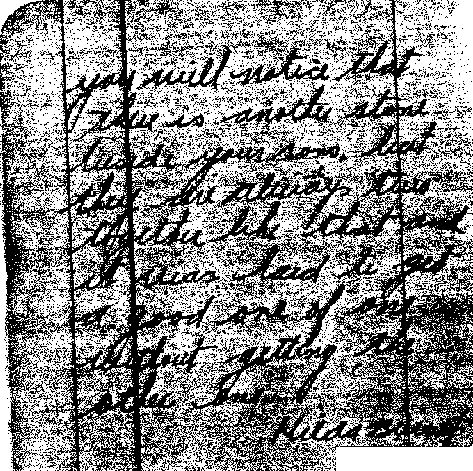 you will notice that
there is another stone
beside your sons, but
they are always two
together like that and
it was hard to get
a good one of one
without getting the
other in
Hilda